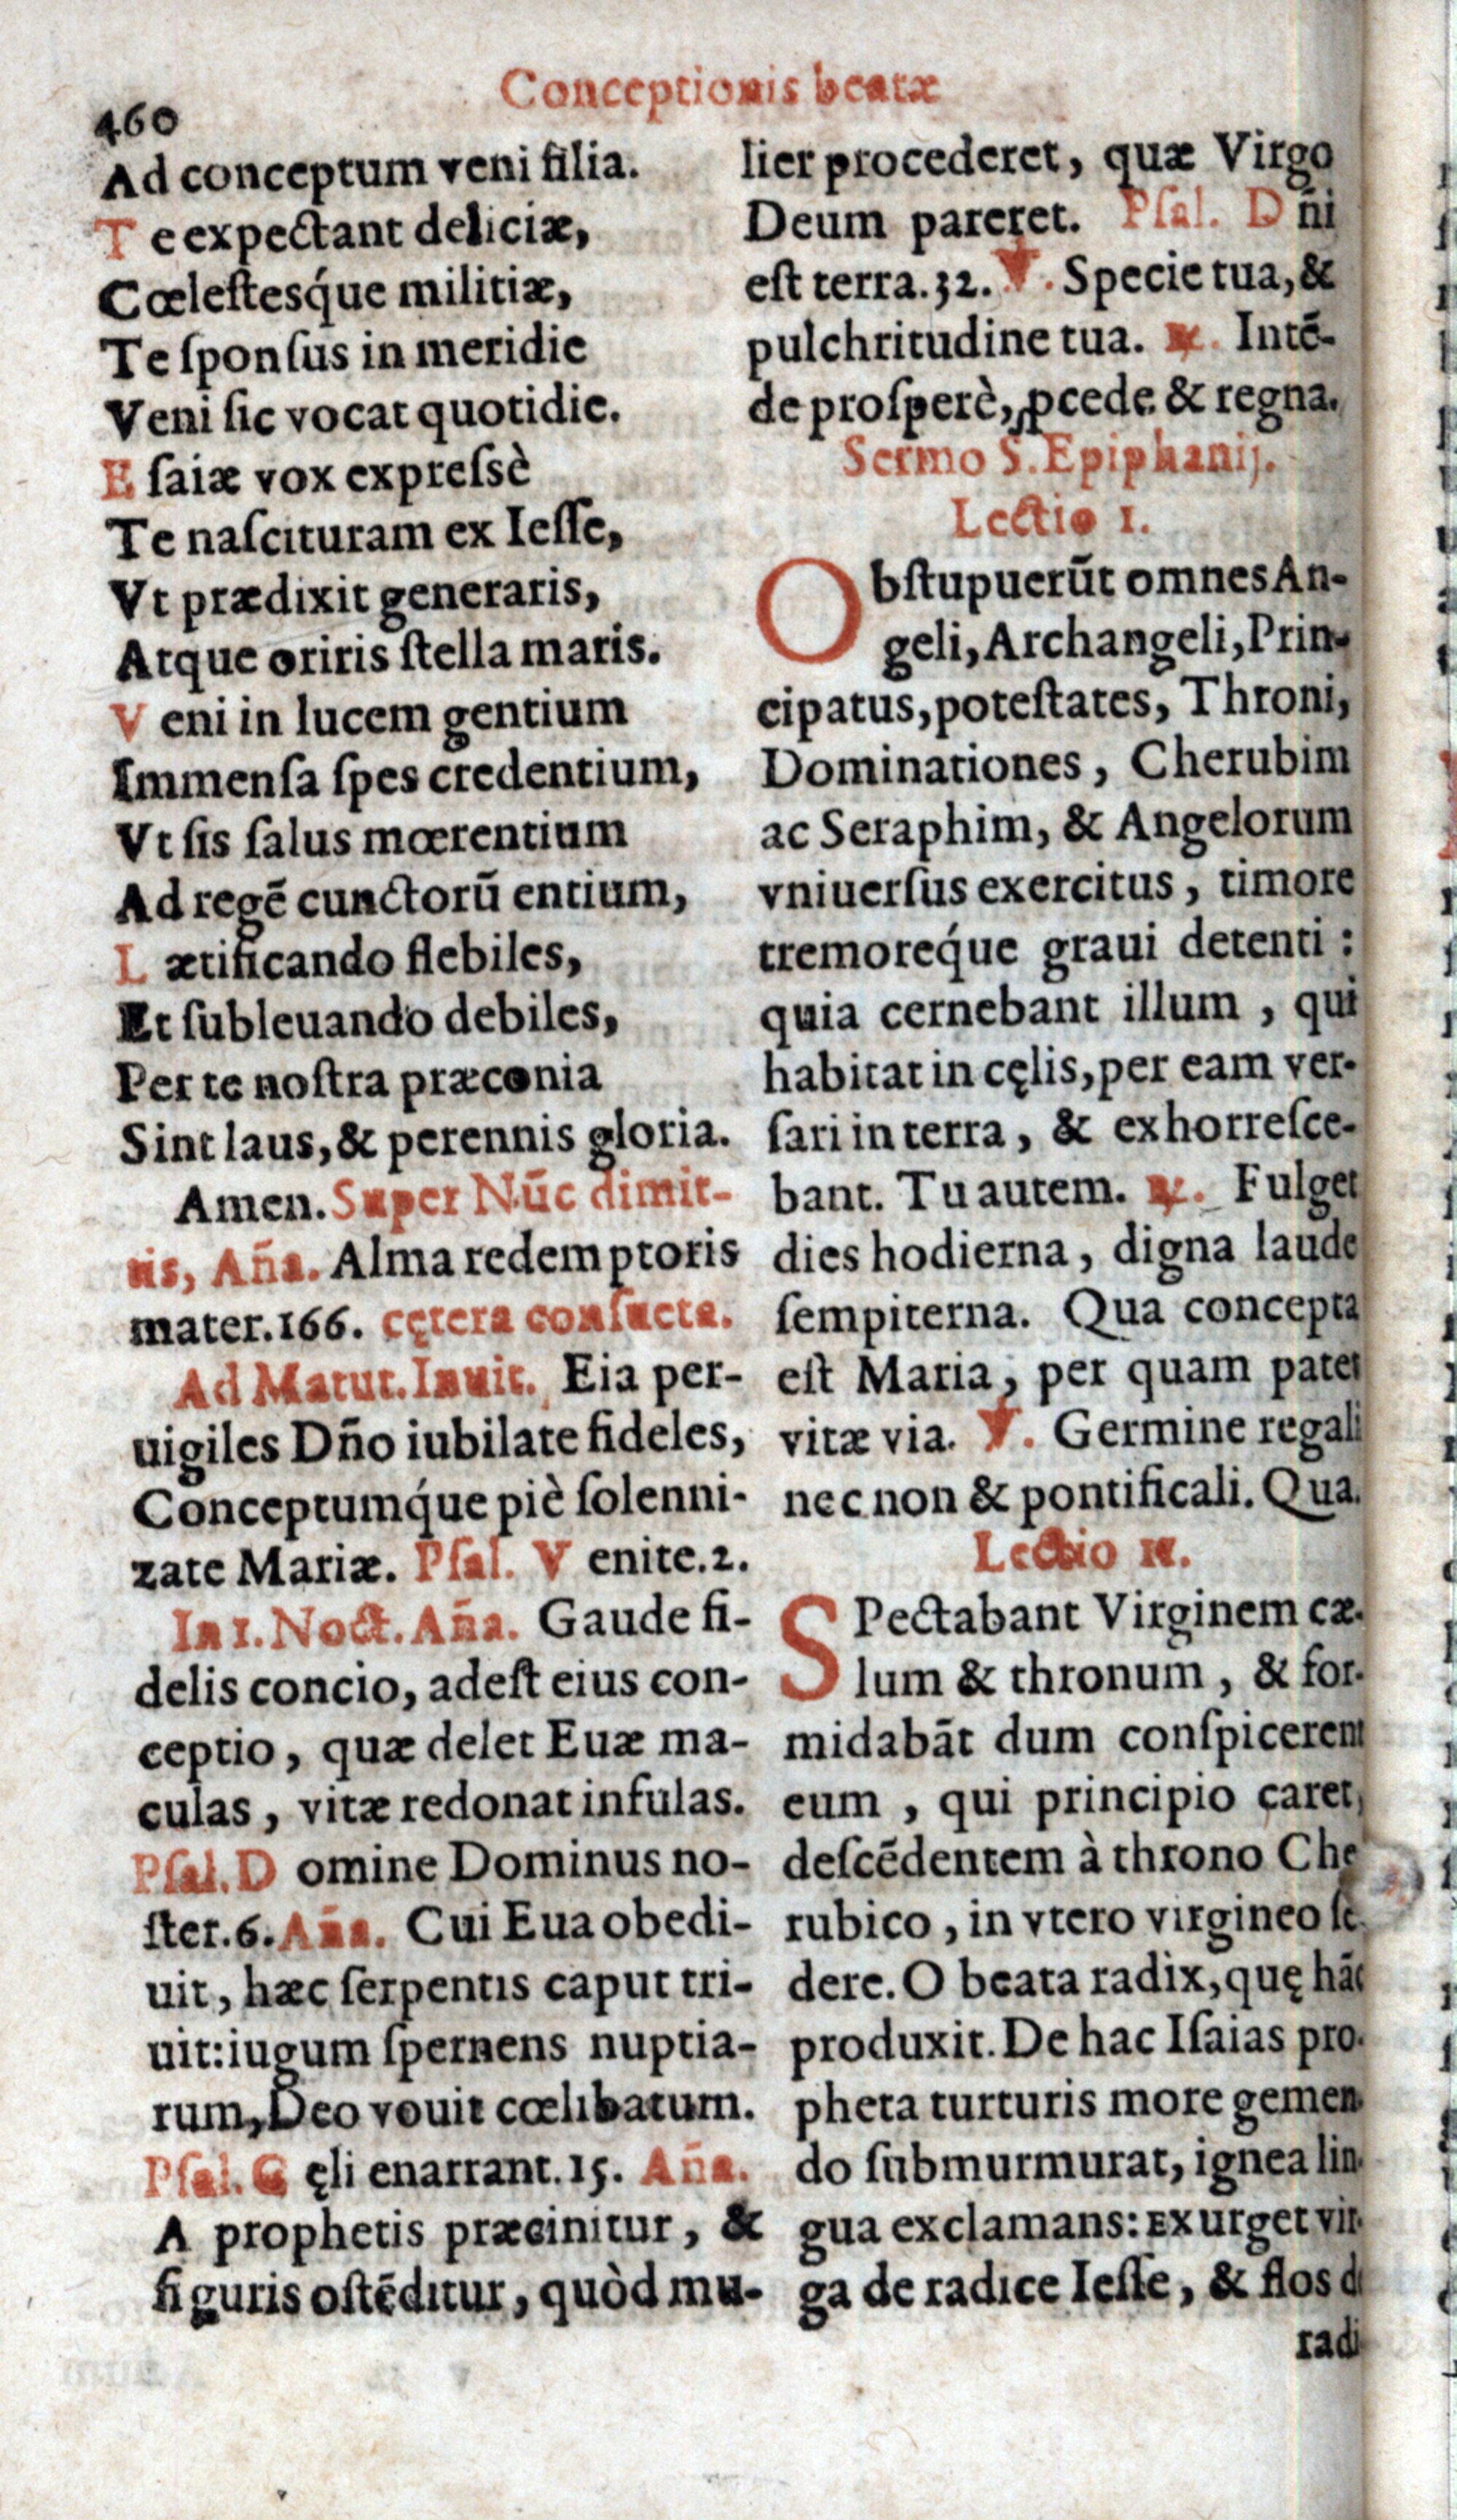 Conceptionis beatæ
460
Ad conceptum veni filia.
T e expectant deliciæ,
Cœlestesq́ue militiæ,
Te ſponſus in meridie
Veni ſic vocat quotidie.
E ſaiæ vox expreſsè
Te naſcituram ex Ieſſe,
Vt prædixit generaris,
Atque oriris ſtella maris.
V eni in lucem gentium
Immenſa ſpes credentium,
Vt ſis ſalus mœrentium
Ad regẽ cunctorũ entium,
L ætificando flebiles,
Et ſubleuando debiles,
Per te noſtra præconia
Sint laus, & perennis gloria.
Amen. Super Nũc dimit-
tis, Añа. Alma redemptoris
mater. 166. cętera conſueta.
Ad Matut. Inuit. Eia per-
uigiles Dño iubilate fideles,
Conceptumq́ue piè ſolenni-
zate Mariæ. Pſal. V enite. 2.
In 1. Noct. Aña. Gaude fi-
delis concio, adeſt eius con-
ceptio, quæ delet Euæ ma-
culas, vitæ redonat infulas.
Pſal. D omine Dominus no-
ſter. 6. Aña. Cui Eua obedi-
uit, hæc ſerpentis caput tri-
uit: iugum ſpernens nuptia-
rum, Deo vouit cœlibatum.
Pſal. C ęli enarrant. 15. Aña.
A prophetis præcinitur, &
figuris oſtẽditur, quòd mu-
lier procederet, quæ Virgo
Deum pareret. Pſal. D ñi
eſt terra. 32. ℣. Specie tua, &
pulchritudine tua. ℟. Intẽ-
de proſperè, ꝓcede & regna.
Sermo S. Epiphanij.
Lectio I.
Obſtupuerũt omnes An-
geli, Archangeli, Prin-
cipatus, poteſtates, Throni,
Dominationes, Cherubim
ac Seraphim, & Angelorum
vniuerſus exercitus, timore
tremoreq́ue graui detenti:
quia cernebant illum, qui
habitat in cęlis, per eam ver-
ſari in terra, & exhorreſce-
bant. Tu autem. ℟. Fulget
dies hodierna, digna laude
ſempiterna. Qua concepta
eſt Maria, per quam patet
vitæ via. ℣. Germine regali
nec non & pontificali. Qua.
Lectio II.
SPectabant Virginem cæ-
lum & thronum, & for-
midabãt dum conſpicerent
eum, qui principio caret,
deſcẽdentem à throno Che
rubico, in vtero virgineo ſe
dere. O beata radix, quę hãc
produxit. De hac Iſaias pro-
pheta turturis more gemen-
do ſubmurmurat, ignea lin-
gua exclamans: EXurget vir-
ga de radice Ieſſe, & flos de
radi